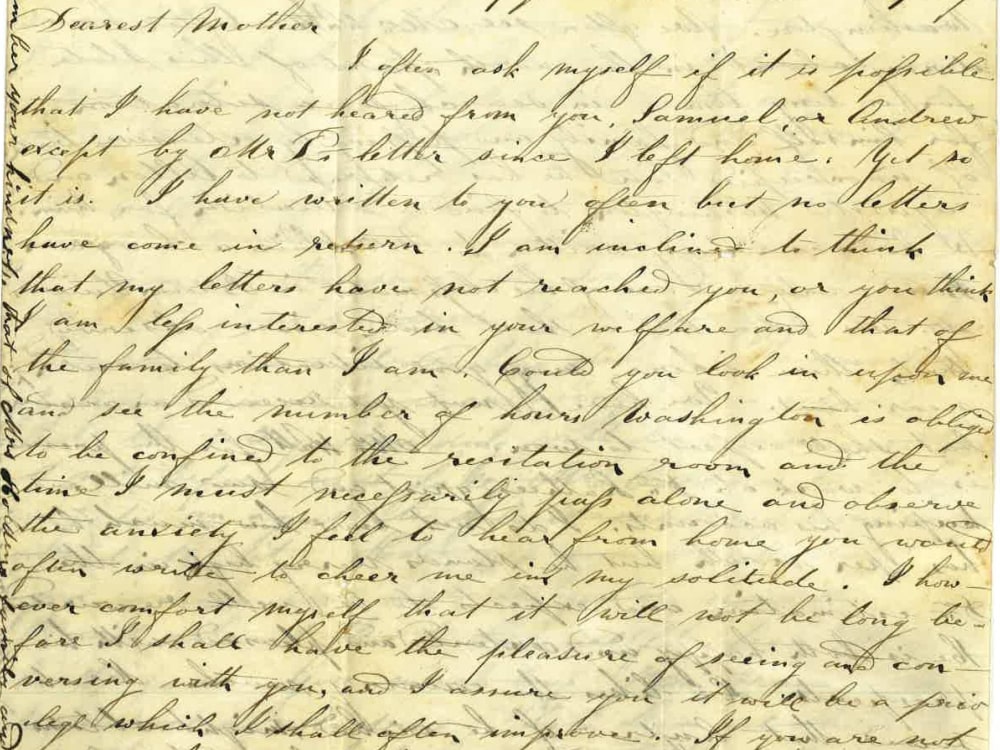 Dearest Mother
I often ask myself if it is possible
that I have not heared from you, Samuel, or Andrew
except by Mr P's letter since I left home. Yet so
it is. I have written to you often but no letters
have come in return. I am inclined to think
that my letters have not reached you, or you think
I am less interested in your welfare and that of
the family than I am. Could you look in upon me
and see the number of hours Washington is obliged
to be confined to the recitation room and the
time I must necessarily pass alone and observe
the anxiety I feel to hear from home you would
often write to cheer me in my solitude. I how-
ever comfort myself that it will not be long be-
fore I shall have the pleasure of seeing and con-
versing with you, and I assure you it will be a priv
ilege which I shall often improve. If you are not
mber your kindness, that of Mrs family and